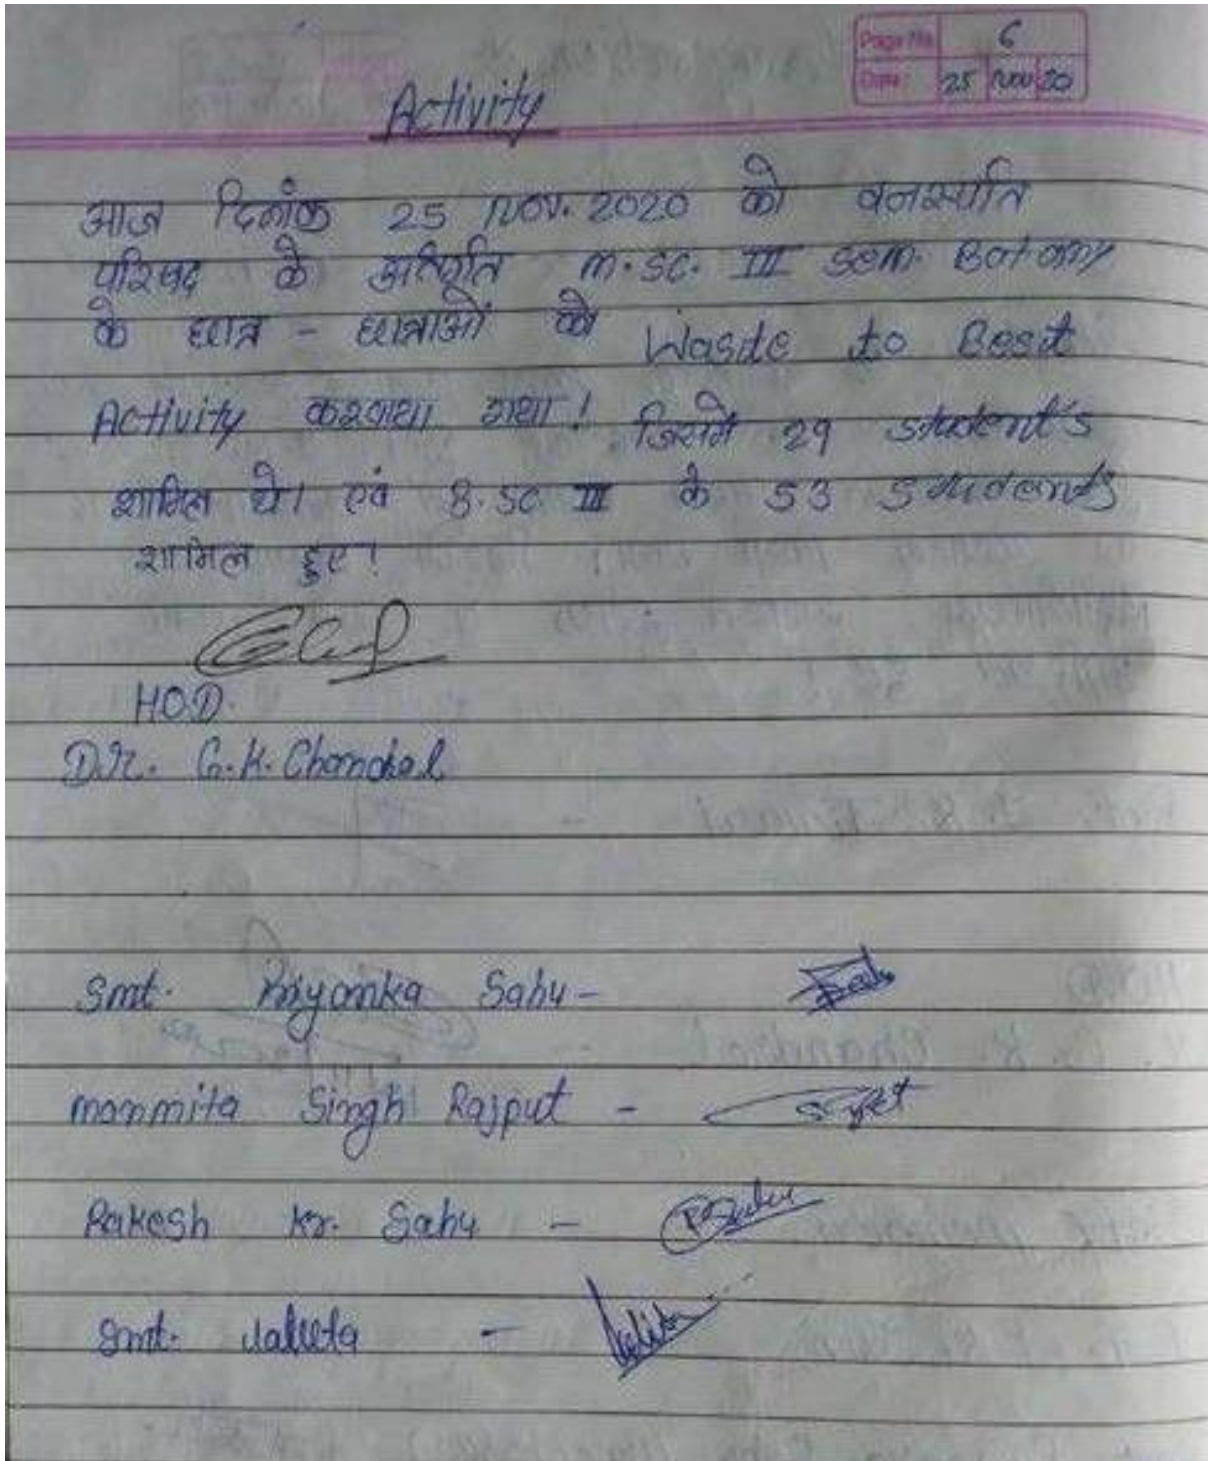 Page No. 6
Date 25 Nov 20
Activity
आज दिनांक 25 Nov. 2020 को वनस्पति
परिषद के अंतर्गत M.SC. III Sem. Botany
के छात्र - छात्राओं को Waste to Best
Activity करवाया गया! जिसमें 29 student's
शामिल थे। एवं B.SC III के 53 students
शामिल हुए!
H.O.D.
Dr. G.K. Chandel
Smt. Priyanka Sahu -
Manmita Singh Rajput -
Rakesh Kr. Sahu -
Smt. Lalita -